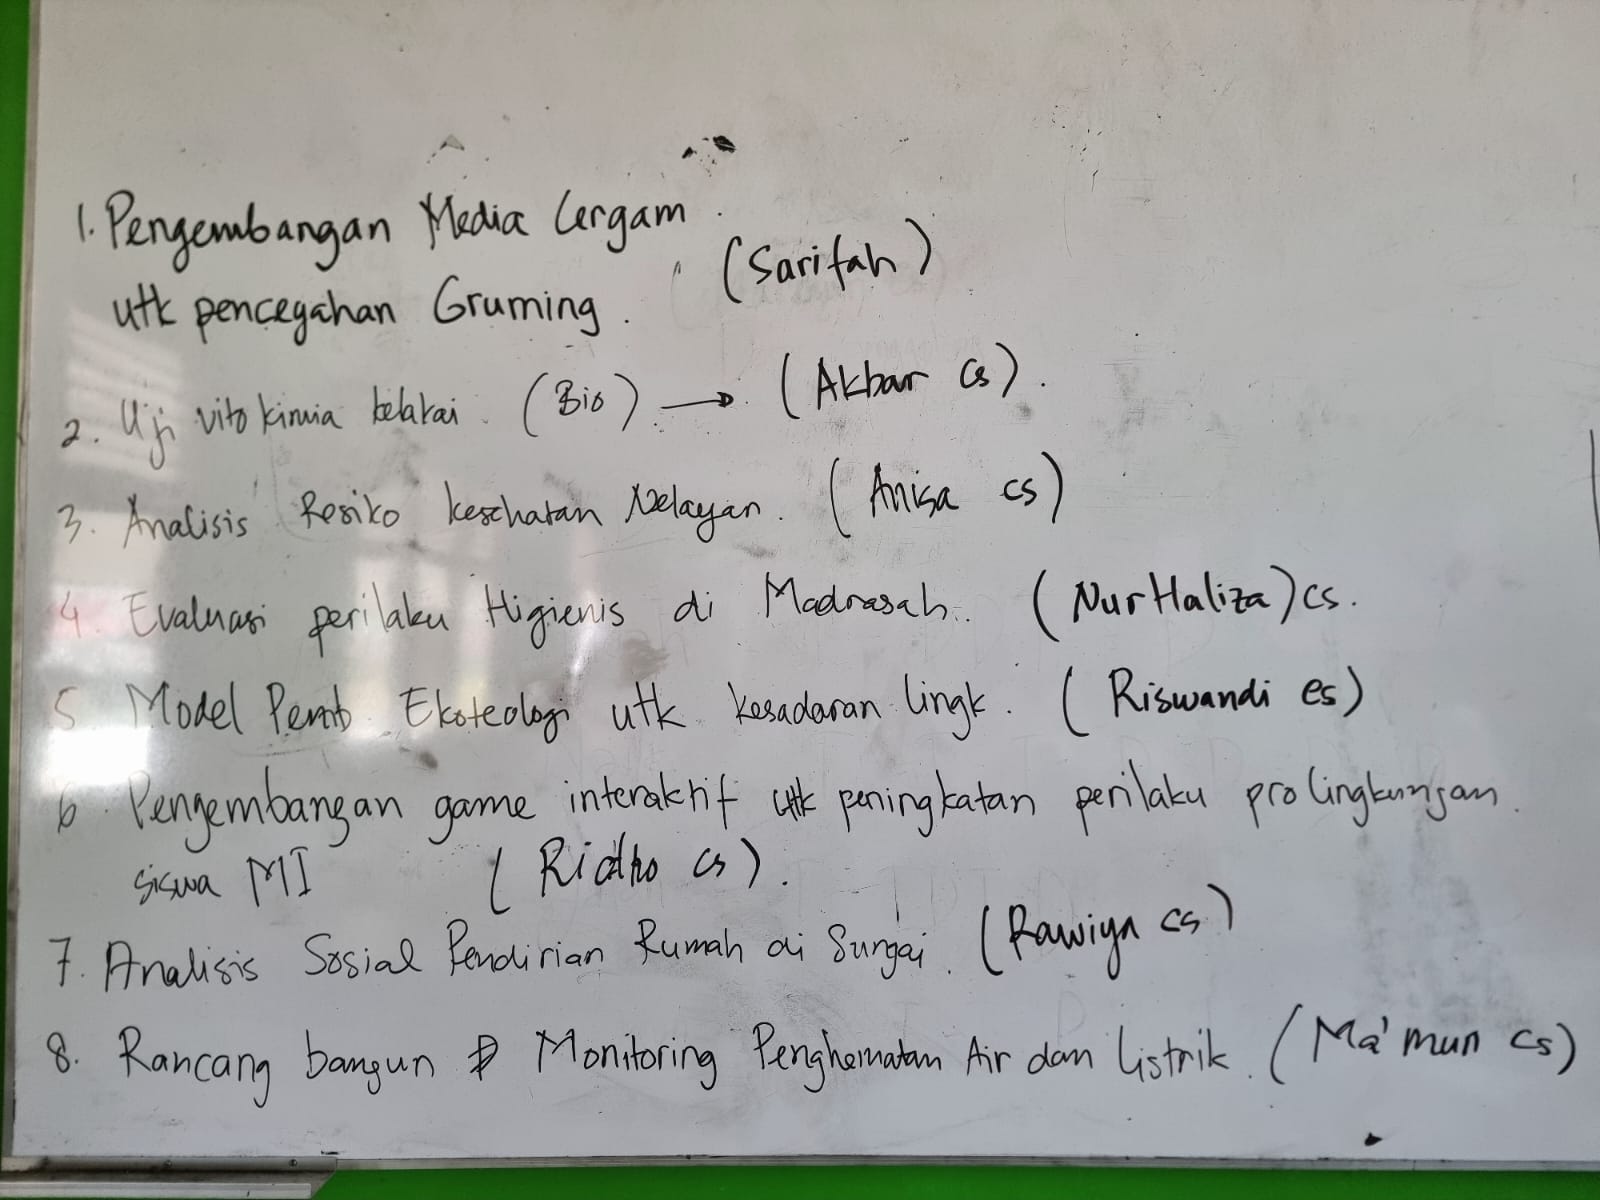 1. Pengembangan Media Cergam
utk pencegahan Gruming. (Sarifah)
2. Uji vitokimia kelakai. (Bio) → (Akbar cs).
3. Analisis Resiko kesehatan Nelayan. (Anisa cs)
4. Evaluasi perilaku Higienis di Madrasah. (NurHaliza) cs.
5 Model Pemb. Ekoteologi utk kesadaran lingk. (Riswandi cs)
6. Pengembangan game interaktif utk peningkatan perilaku prolingkungan.
siswa MI (Ridho cs).
7. Analisis Sosial Pendirian Rumah di Sungai. (Rawiya cs)
8. Rancang bangun Monitoring Penghematan Air dan listrik. (Ma'mun cs)